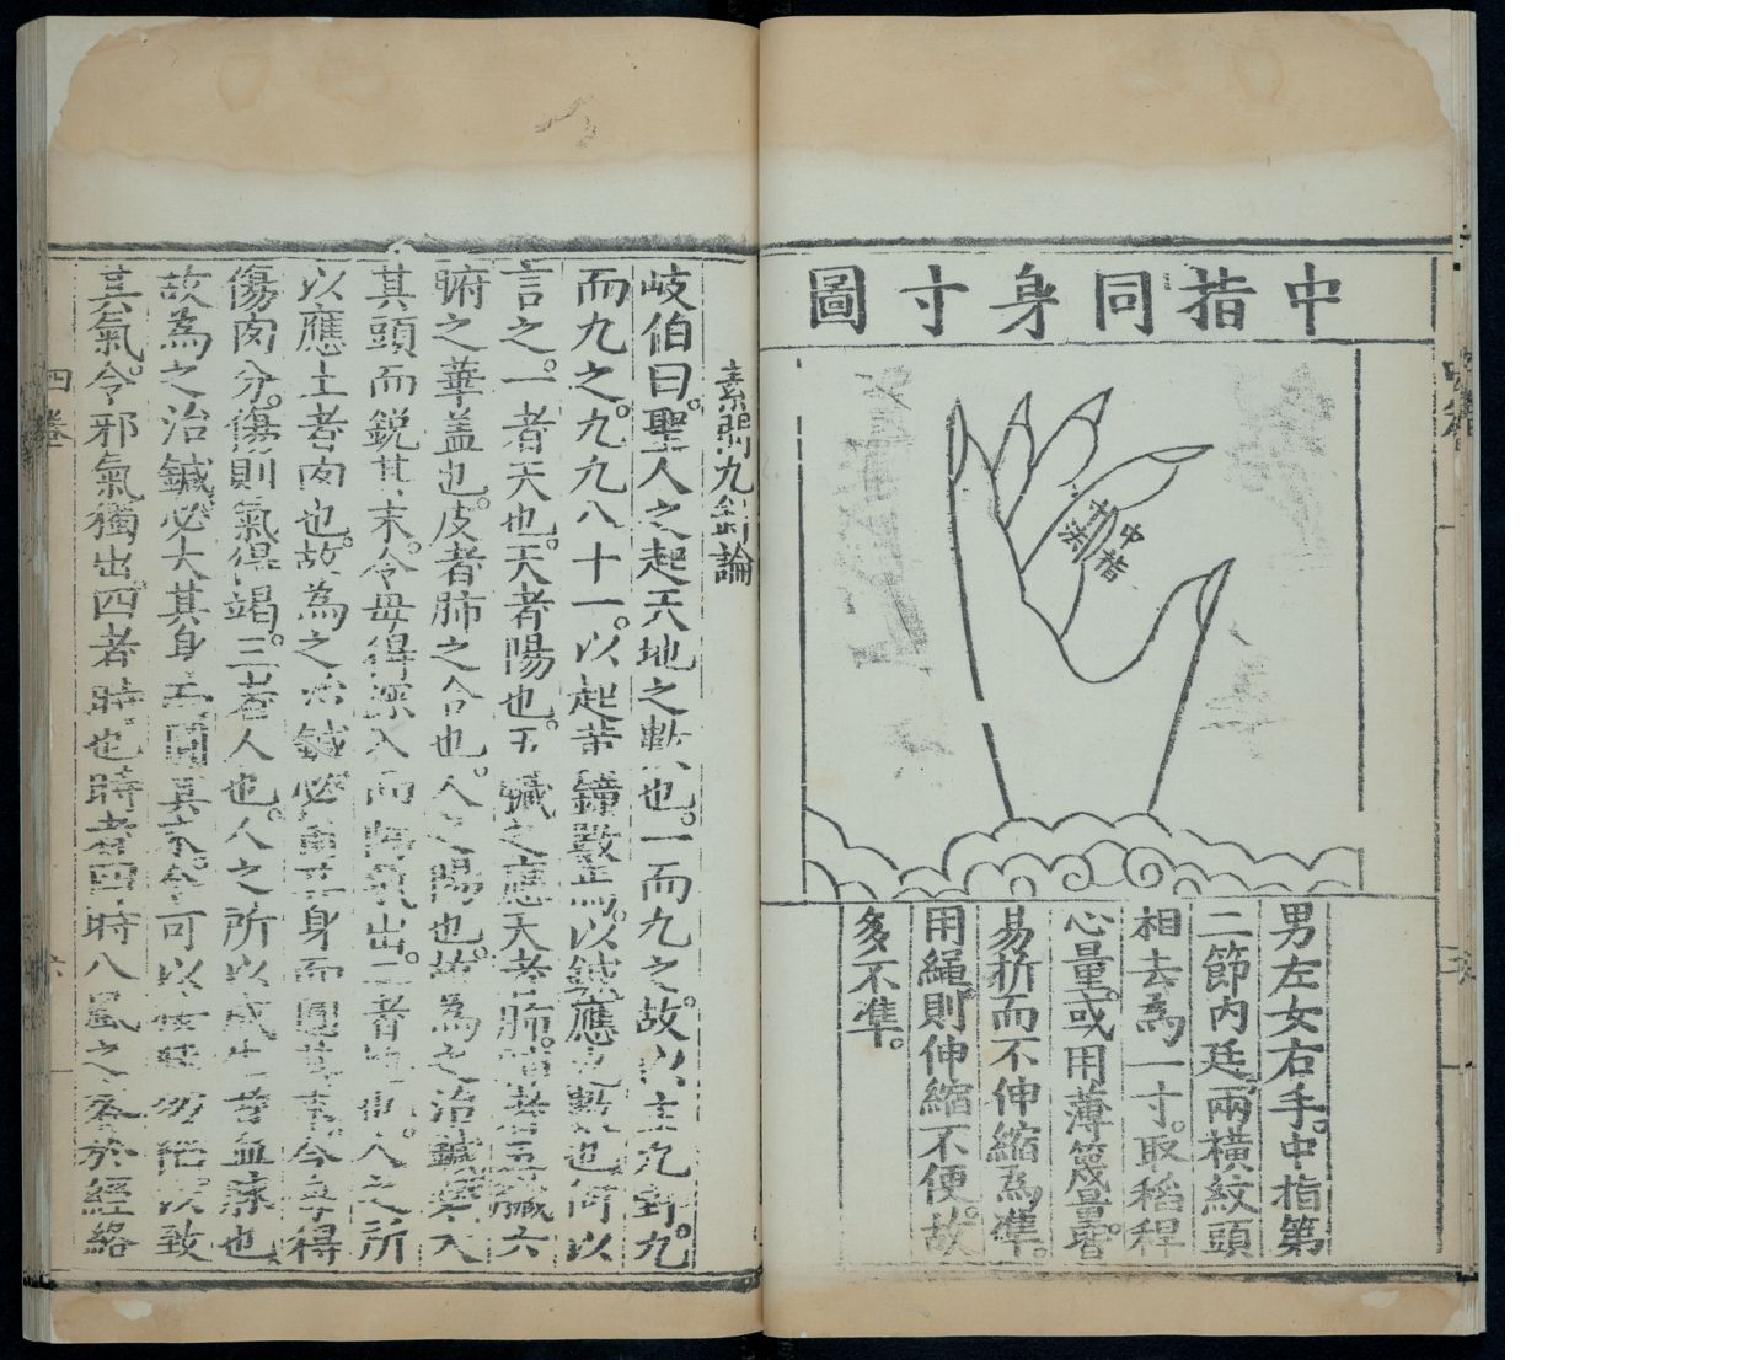 中指同身寸圖
中指
男左女右手。中指第
二節內廷兩橫紋頭
相去為一寸。取稻稈
心量。或用薄篾量。皆
易折而不伸縮為準。
用繩則伸縮不便。故
多不準。
素問九針論
岐伯曰。聖人之起天地之數也。一而九之。故以主九野。九
而九之。九九八十一。以起黃鐘數焉。以鍼應之數也何以
言之。一者天也。天者陽也。五臟之應天者肺。肺者五臟六
腑之華盖也。皮者肺之合也。人之陽也。故為之治鍼必大
其頭而銳其末。令毋得深入而陽氣出。二者地也。人之所
以應土者肉也。故為之治鍼必其身而圓其末。令毋得
傷肉分。傷則氣得竭。三者人也。人之所以成生者血脉也
故為之治鍼必大其身而圓其末。令可以勿以致
其氣。令邪氣獨出四者時也時者四時八風之客於經絡
四卷